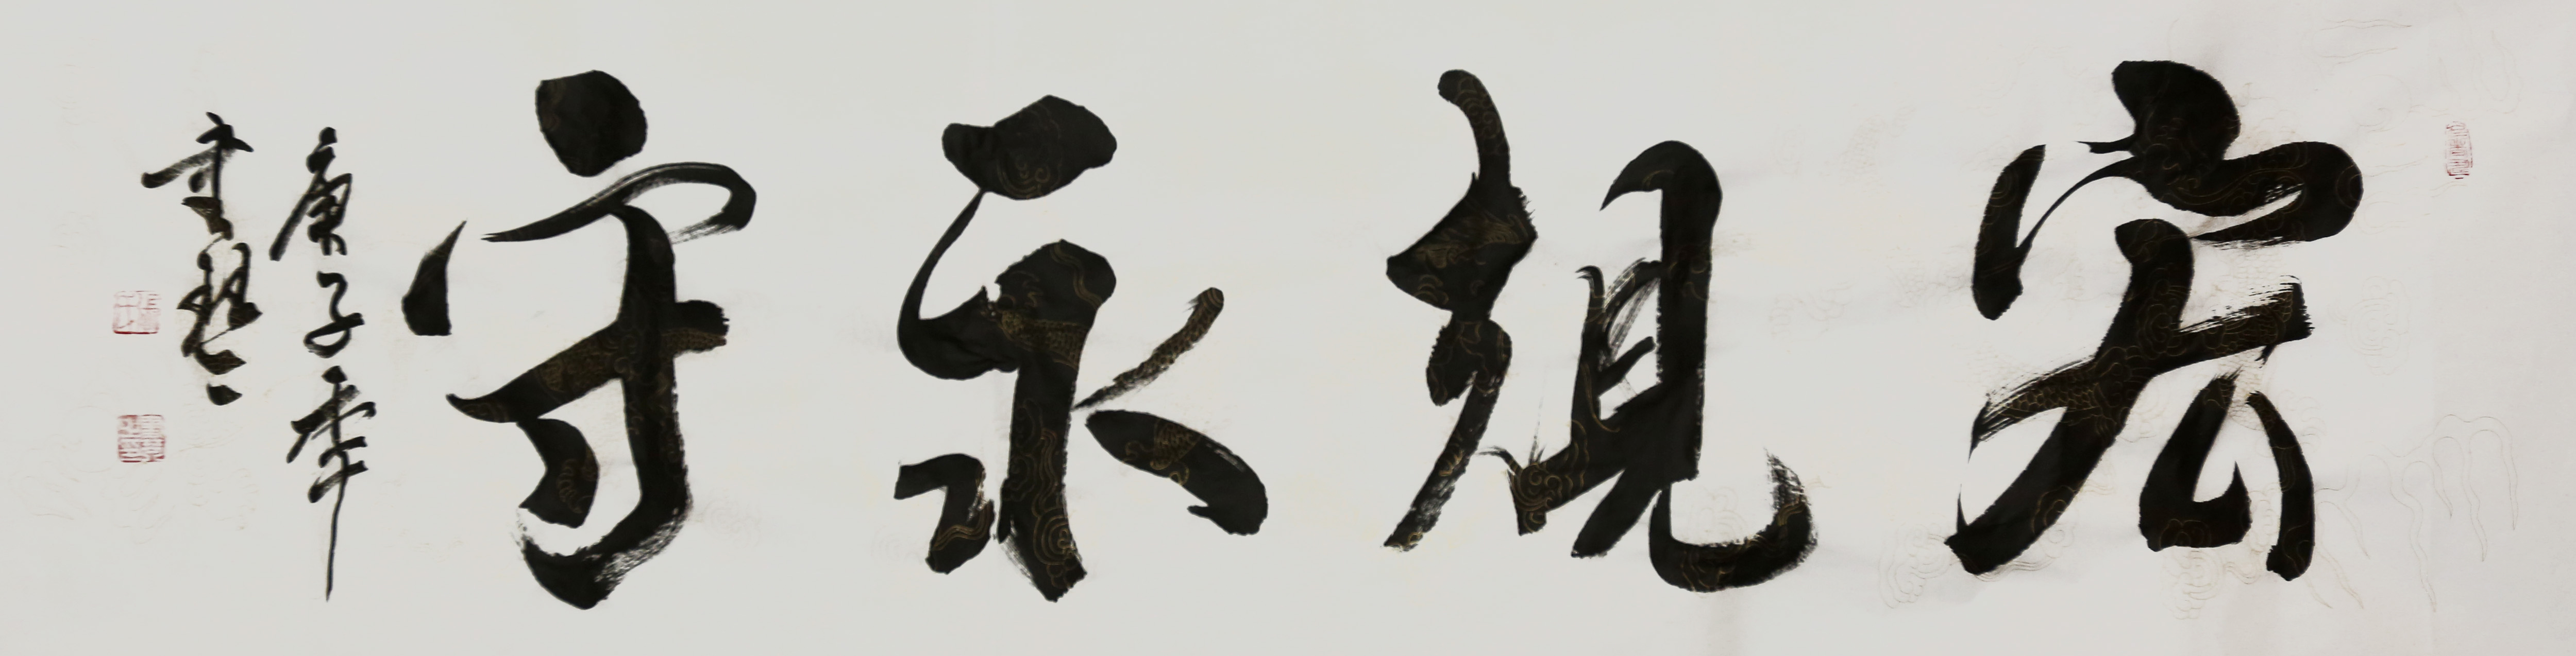 宏規永守
庚子季
書